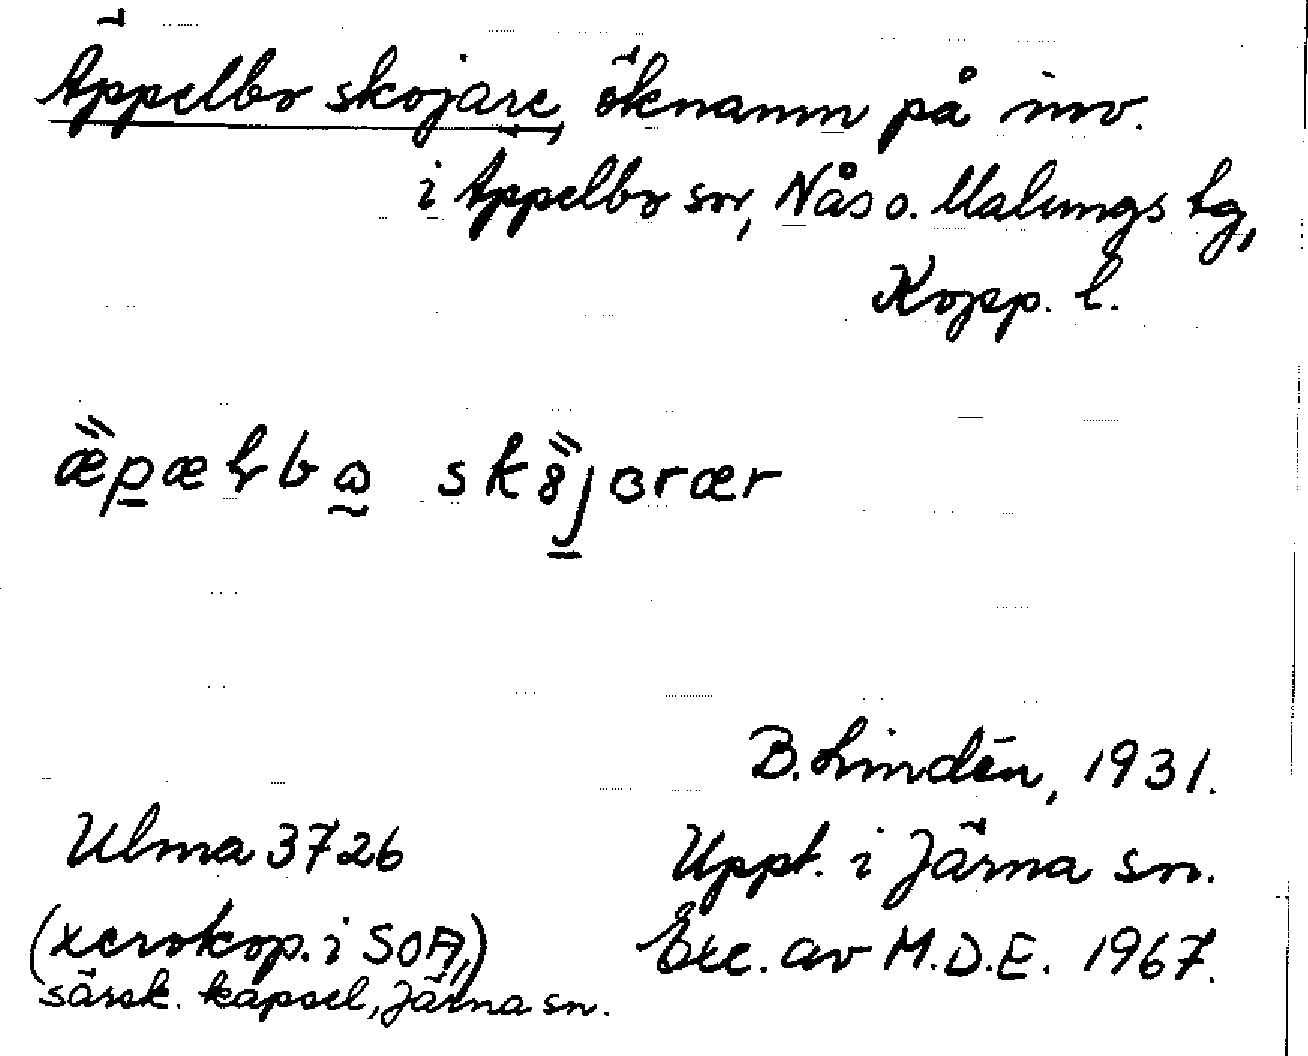 Äppelbo skojare, öknamn på inv.
i Äppelbo sn, Nås o. Malungs tg,
Kopp. l.
æ̋pæɽbɷ sk8̋jɑrær
B. Lindén, 1931.
Ulma 3726
Uppt. i Järna sn.
(xerokop. i SOA,)
Exc. av M.D.E. 1967.
särsk. kapsel, Järna sn.